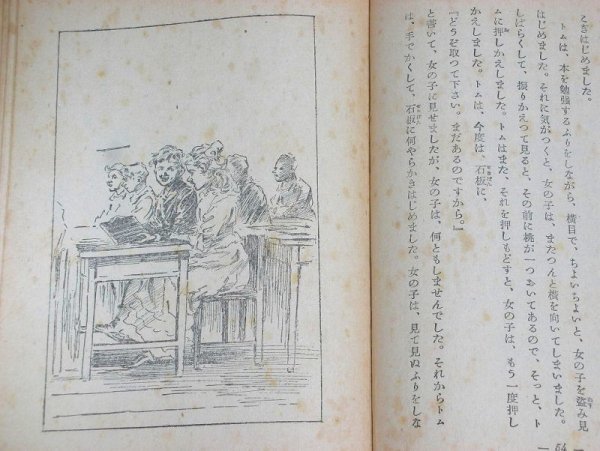 ときはじめました。
トムは、本を勉強するふりをしながら、横目で、ちよいちよいと、女の子を盗み見
はじめました。それに気がつくと、女の子は、またつんと横を向いてしまいました。
しばらくして、振りかえつて見ると、その前に桃が一つおいてあるので、そつと、ト
ムに押しかえしました。トムはまた、それを押しもどすと、女の子は、もう一度押し
かえしました。トムは、今度は、石板に、
『どうぞ取つて下さい。まだあるのですから。』
と書いて、女の子に見せましたが、女の子は、何ともしませんでした。それからトム
は、手でかくして、石板に何やらかきはじめました。女の子は、見て見ぬふりをしな
64